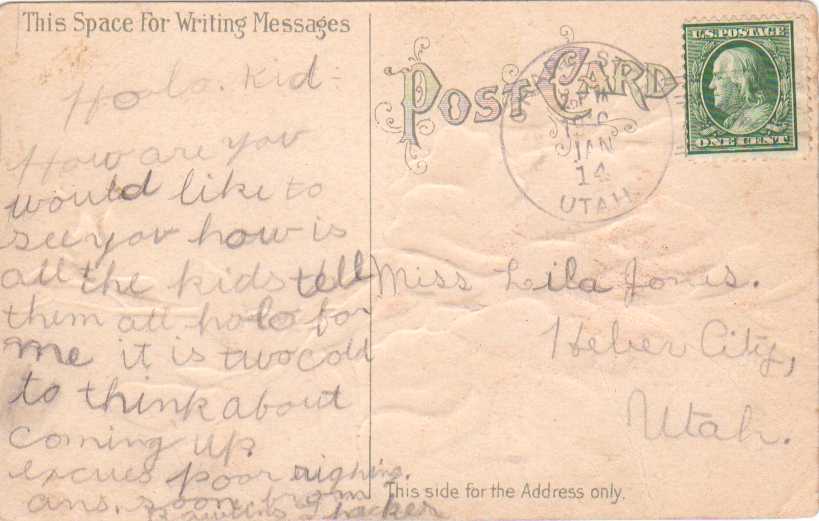 This Space For Writing Messages
Holo. Kid-
How are you
would like to
see you how is
all the kids tell
them all holo for
me it is two cold
to think about
coming up
excues poor
ans. soon from
Thacker
POST CARD
JAN
14
UTAH
U.S. POSTAGE
ONE CENT
Miss Lila Jones.
Heber City,
Utah.
This side for the Address only.